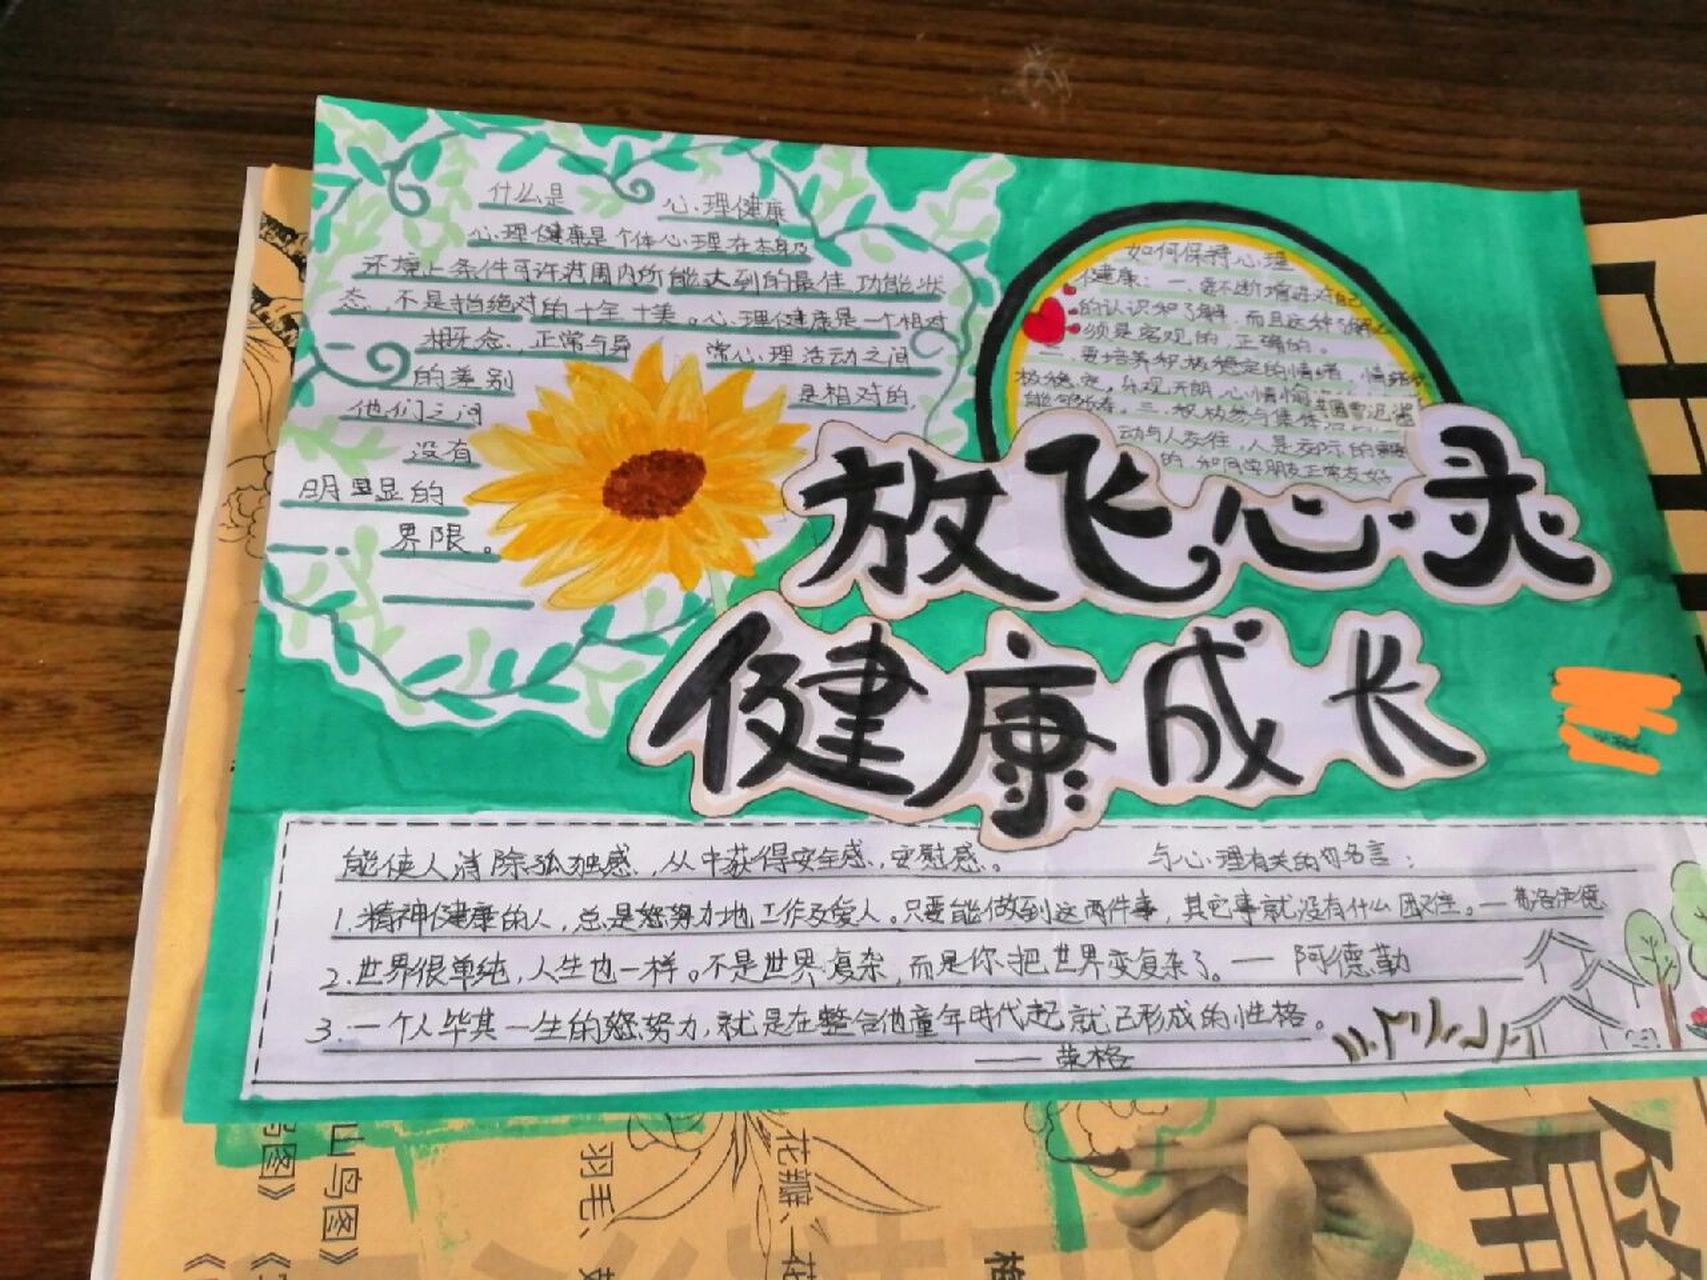 什么是 心理健康
心理健康是个体心理在本身及
环境上条件可许范围内所能达到的最佳功能状
态，不是指绝对的十全十美。心理健康是一个相对
概念，正常与异 常心理活动之间
的差别 是相对的，
他们之间
没有
明显的
界限。
如何保持心理
健康：一、要不断增进对自己
的认识和了解，而且这种了解必
须是客观的，正确的。
二、要培养积极稳定的情绪，情绪积
极稳定，乐观开朗，心情愉
能 三、积极参与集体活
动与人交往，人是交际的需要
的，和同学朋友正常友好
放飞心灵
健康成长
能使人消除孤独感，从中获得安全感，安慰感。 与心理有关的的名言：
1.精神健康的人，总是努力地工作及爱人。只要能做到这两件事，其它事就没有什么困难。— 弗洛伊德
2.世界很单纯，人生也一样。不是世界复杂，而是你把世界变复杂了。— 阿德勒
3.一个人毕其一生的努力，就是在整合他童年时代起就已形成的性格。
—— 荣格
山鸟图》
羽毛、
花瓣、花